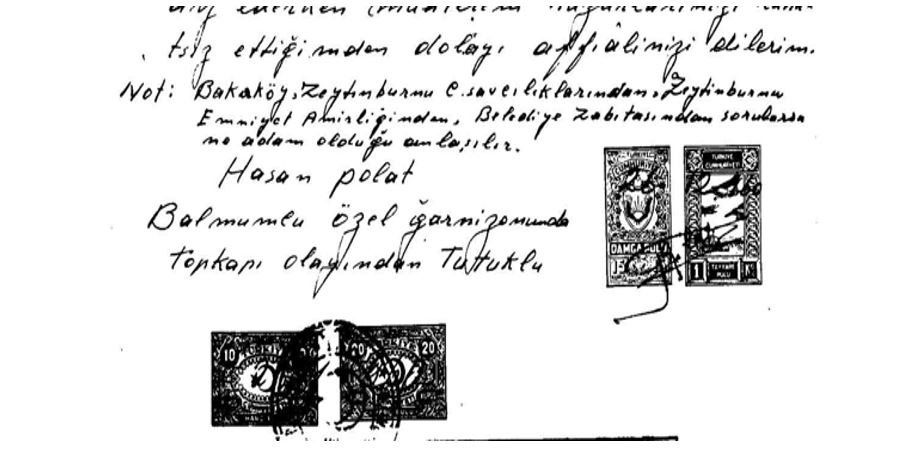 tsiz ettiğimden dolayı affiâlinizi dilerim.
Not: Bakırköy, Zeytinburnu C. savcılıklarından, Zeytinburnu
Emniyet Amirliğinden, Belediye Zabıtasından sorulursa
ne adam olduğu anlaşılır.
Hasan polat
Balmumcu özel garnizonunda
Topkapı olayından Tutuklu
TÜRKİYE
CUMHURİYETİ
DAMGA PULU
TÜRKİYE
CUMHURİYETİ
1
10 TÜRKİYE
20 TÜRKİYE 20